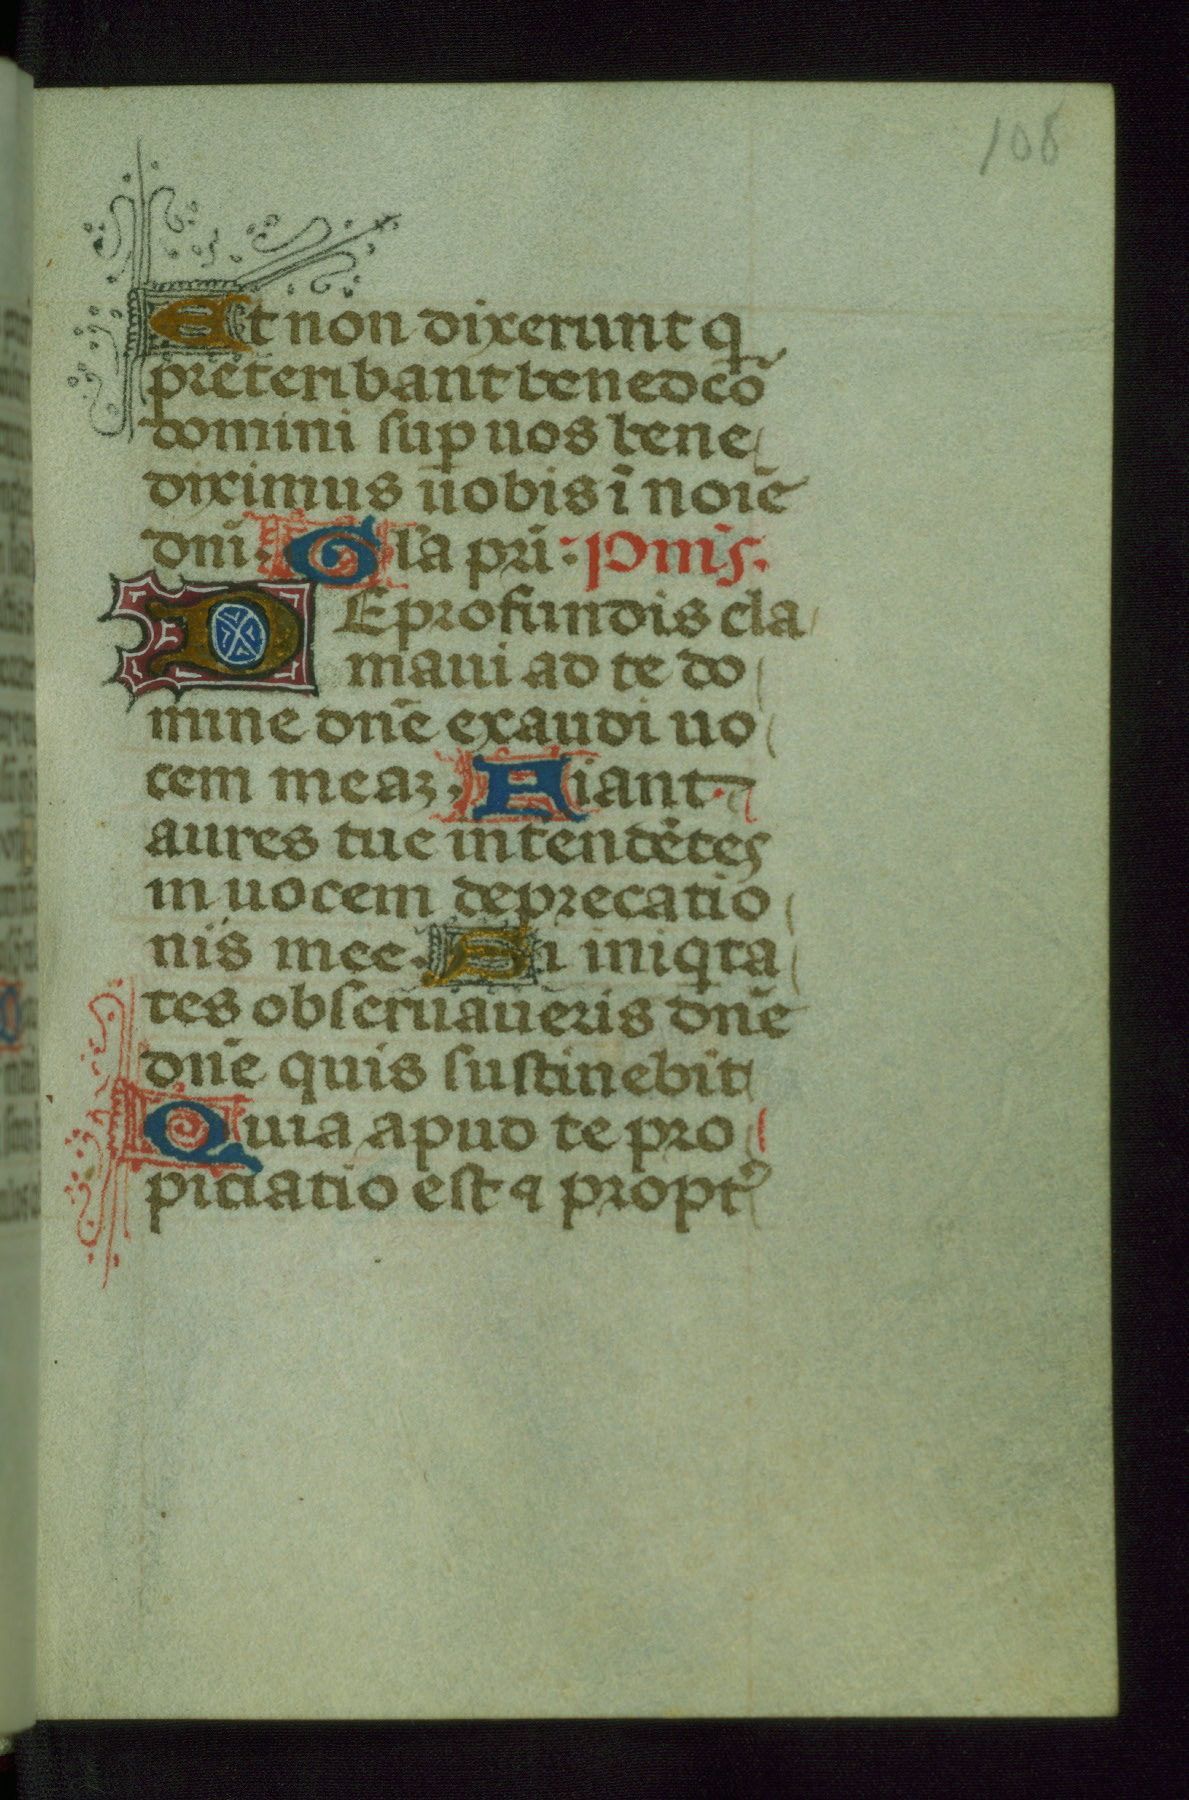 108
Et non dixerunt q̃
preteribant benedc̃o
domini sup uos bene
diximus uobis ĩ noiẽ
dñi. Gl'a pri. Pm̃s.
DE profundis cla
maui ad te do
mine dñe exaudi uo
cem meaz. Fiant
aures tue intendẽtes
in uocem deprecatio
nis mee. Si iniqta
tes obseruaueris dñe
dñe quis sustinebit
Quia apud te pro
piciatio est ⁊ propt᾽